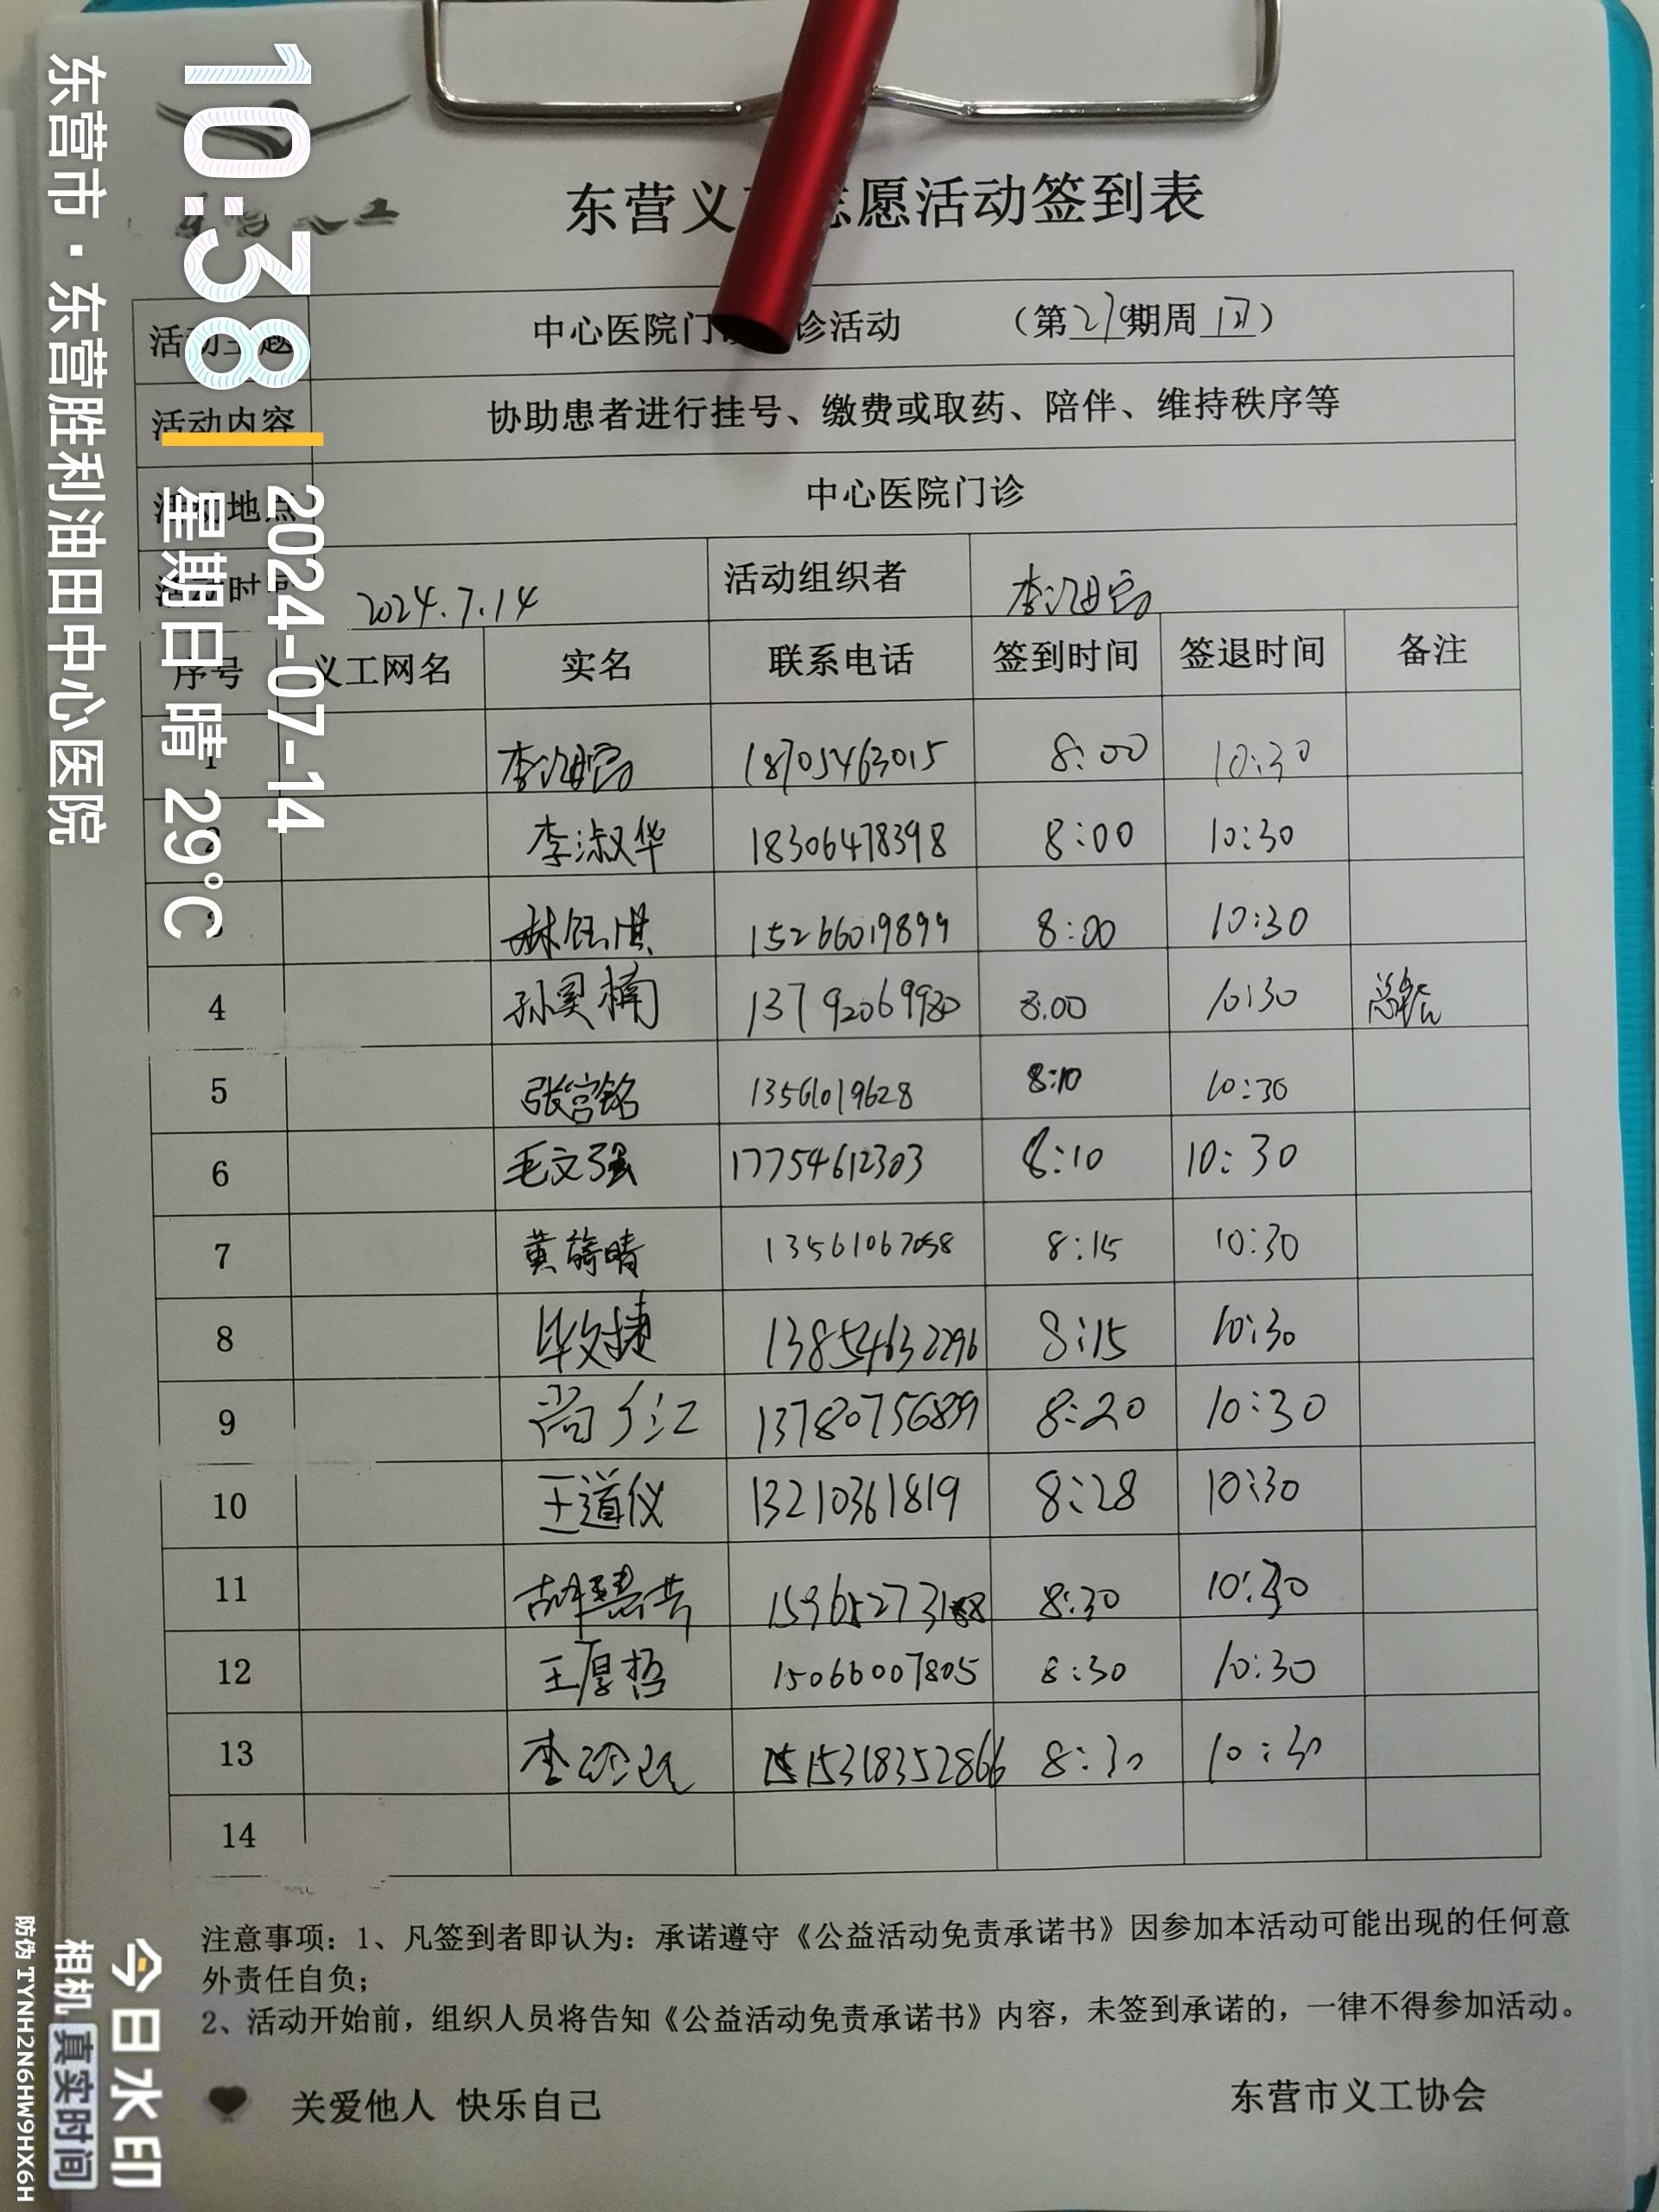 东营义 志愿活动签到表
活动主题 中心医院门 诊活动 （第 期周 ）
活动内容 协助患者进行挂号、缴费或取药、陪伴、维持秩序等
活动地点 中心医院门诊
活动时间 2024.7.14 活动组织者
序号 义工网名 实名 联系电话 签到时间 签退时间 备注
1 18705463015 8:00 10:30
2 李淑华 18306478398 8:00 10:30
3 林钰淇 15266019899 8:00 10:30
4 孙昊楠 13792069980 8:00 10:30
5 张宫铭 13561019628 8:10 10:30
6 毛文强 17754612303 8:10 10:30
7 黄旖晴 13561067058 8:15 10:30
8 毕文捷 13854632296 8:15 10:30
9 尚 江 13780756839 8:20 10:30
10 王道仪 13210361819 8:28 10:30
11 胡慧芸 8:30 10:30
12 王厚哲 15066007805 8:30 10:30
13 李 15318352866 8:30 10:30
14
注意事项：1、凡签到者即认为：承诺遵守《公益活动免责承诺书》因参加本活动可能出现的任何意
外责任自负；
2、活动开始前，组织人员将告知《公益活动免责承诺书》内容，未签到承诺的，一律不得参加活动。
关爱他人 快乐自己
东营市义工协会
10:38
2024-07-14
星期日 晴 29℃
东营市·东营胜利油田中心医院
今日水印
相机 真实时间
防伪 TYNH2N6HW9HX6H